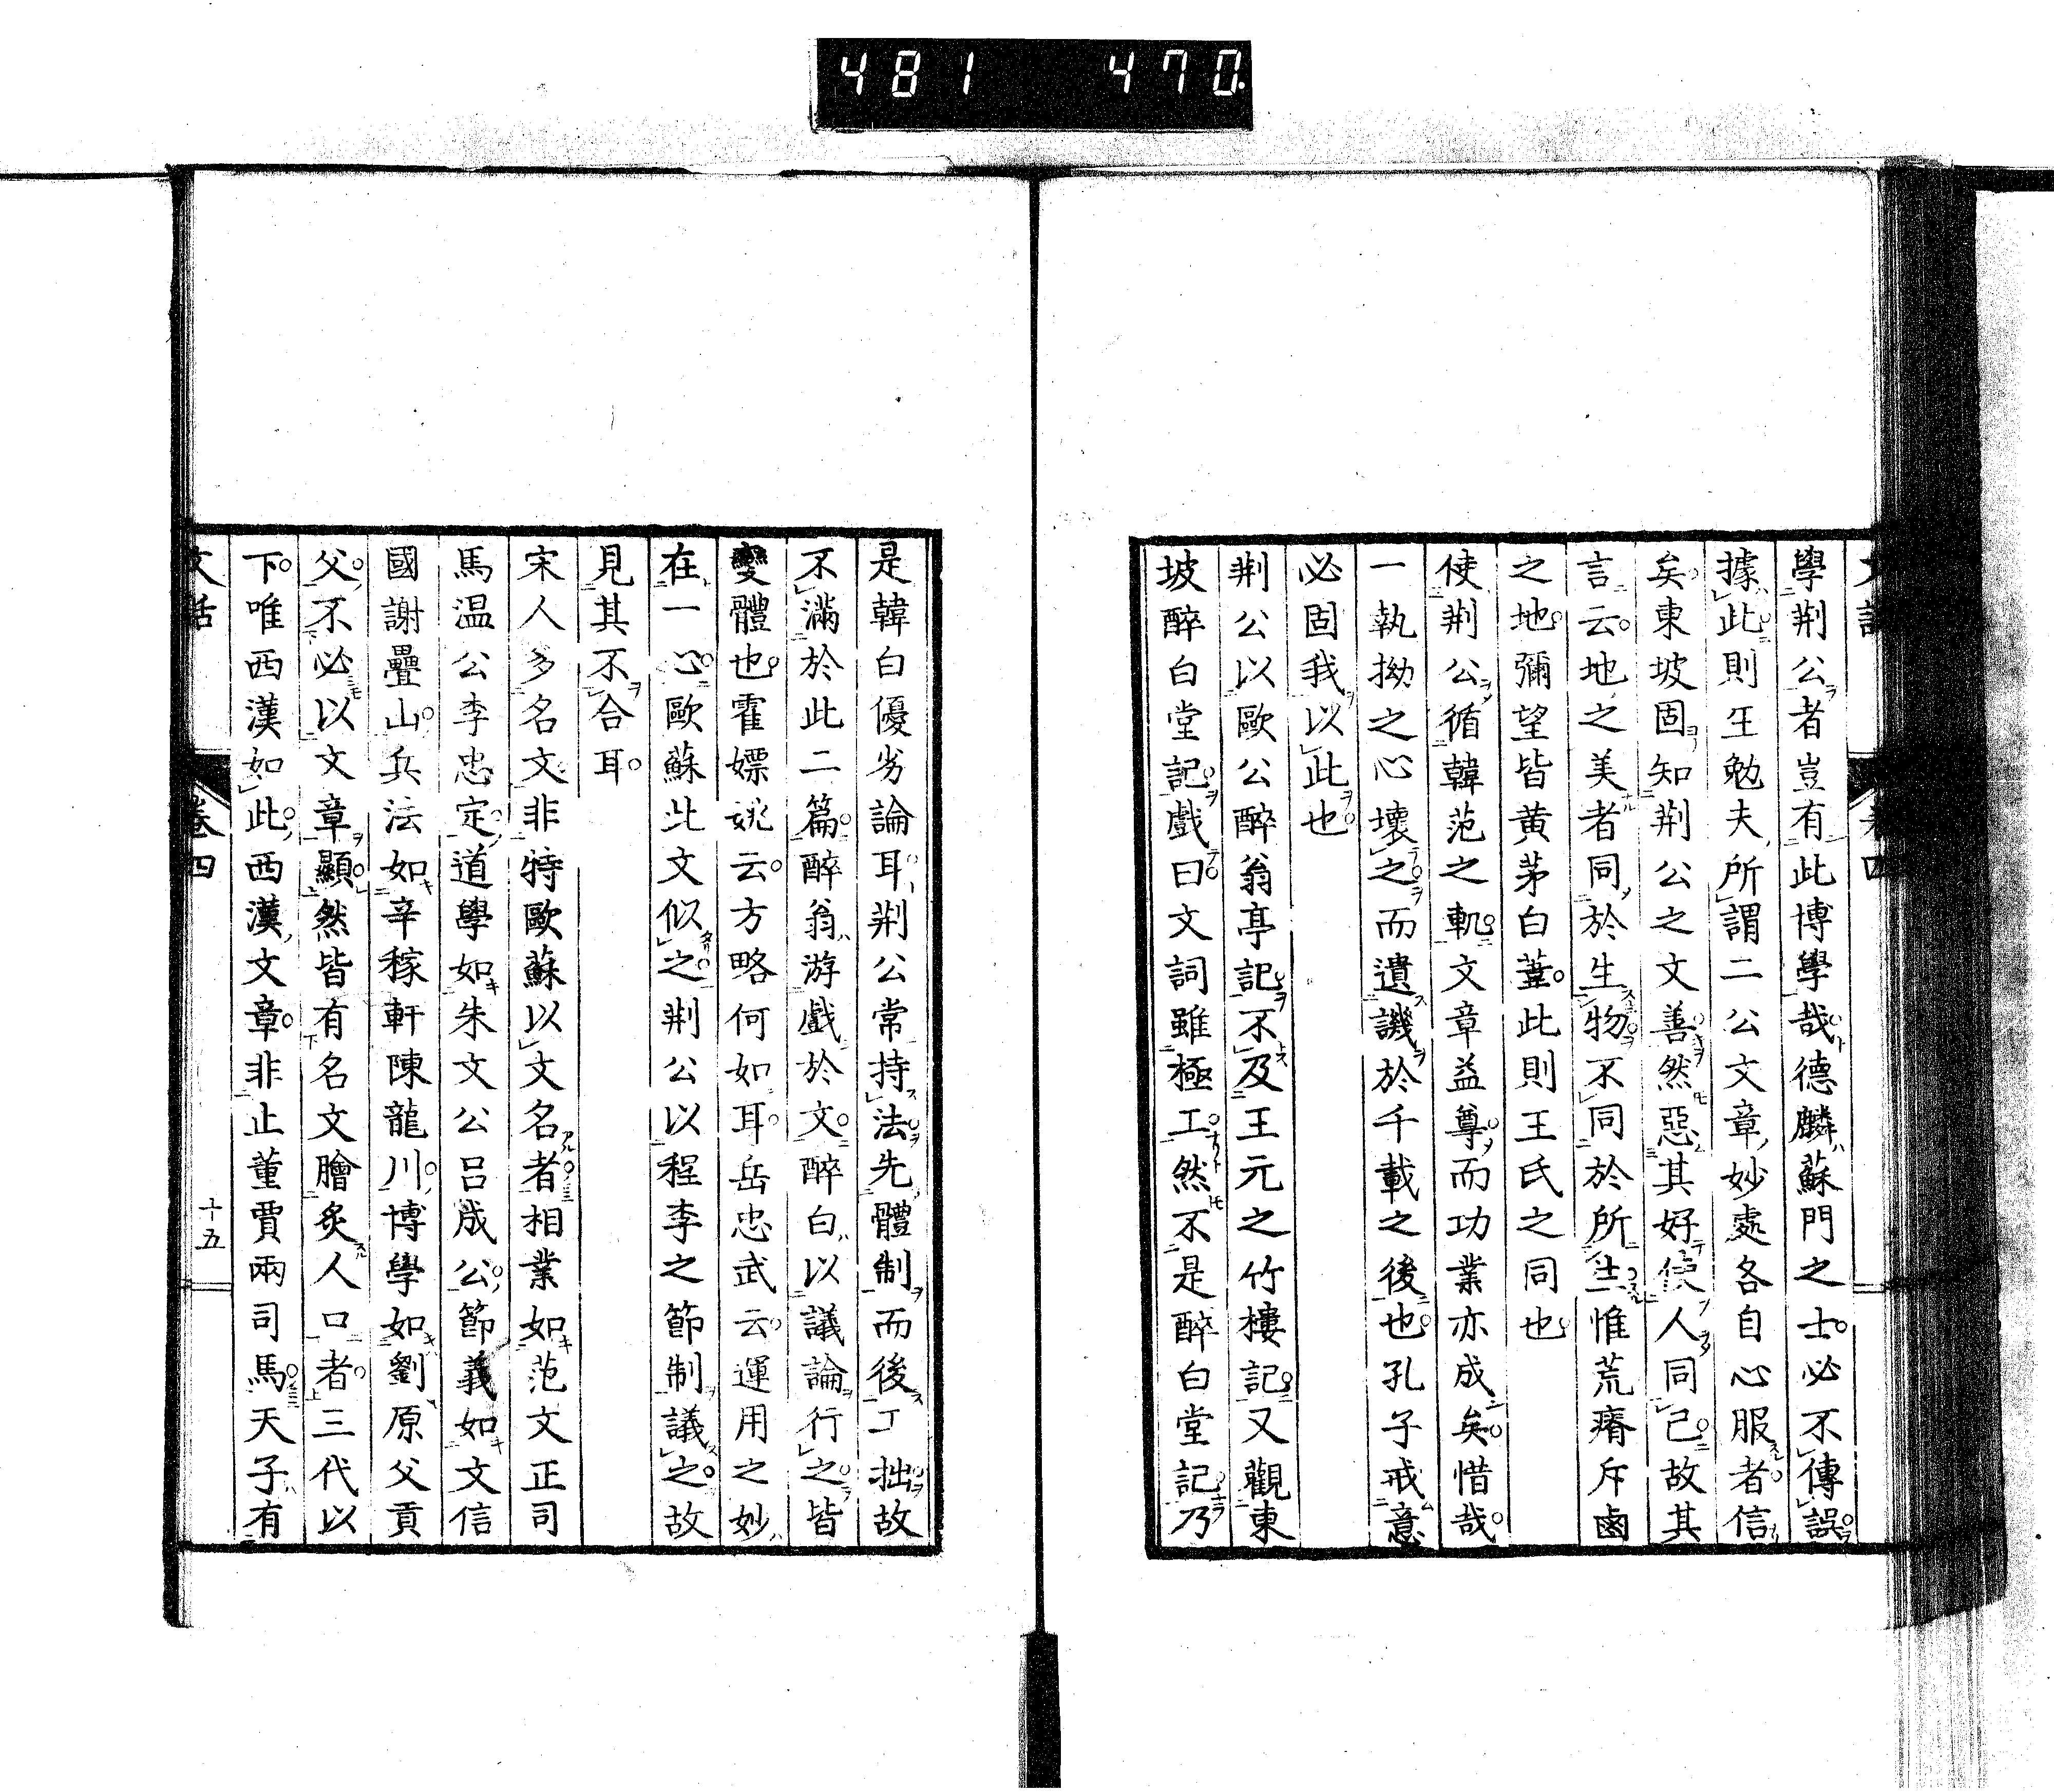 481 470
學荆公者豈有此博學哉德麟蘇門之士必不傳誤
據此則王勉夫所謂二公文章妙處各自心服者信
矣東坡固知荆公之文善然惡其好使人同己故其
言云地之美者同於生物不同於所生惟荒瘠斥鹵
之地彌望皆黄茅白葦此則王氏之同也
使荆公循韓范之軌文章益尊而功業亦成矣惜哉
一執拗之心壞之而遺譏於千載之後也孔子戒意
必固我以此也
荆公以歐公醉翁亭記不及王元之竹樓記又觀東
坡醉白堂記戲曰文詞雖極工然不是醉白堂記乃
是韓白優劣論耳荆公常持法先體制而後工拙故
不滿於此二篇醉翁游戲於文醉白以議論行之皆
變體也霍嫖姚云方略何如耳岳忠武云運用之妙
在一心歐蘇此文似之荆公以程李之節制議之故
見其不合耳
宋人多名文非特歐蘇以文名者相業如范文正司
馬温公李忠定道學如朱文公呂成公節義如文信
國謝疊山兵法如辛稼軒陳龍川博學如劉原父貢
父不必以文章顯然皆有名文膾炙人口者三代以
下唯西漢如此西漢文章非止董賈兩司馬天子有
文話 卷四 十五